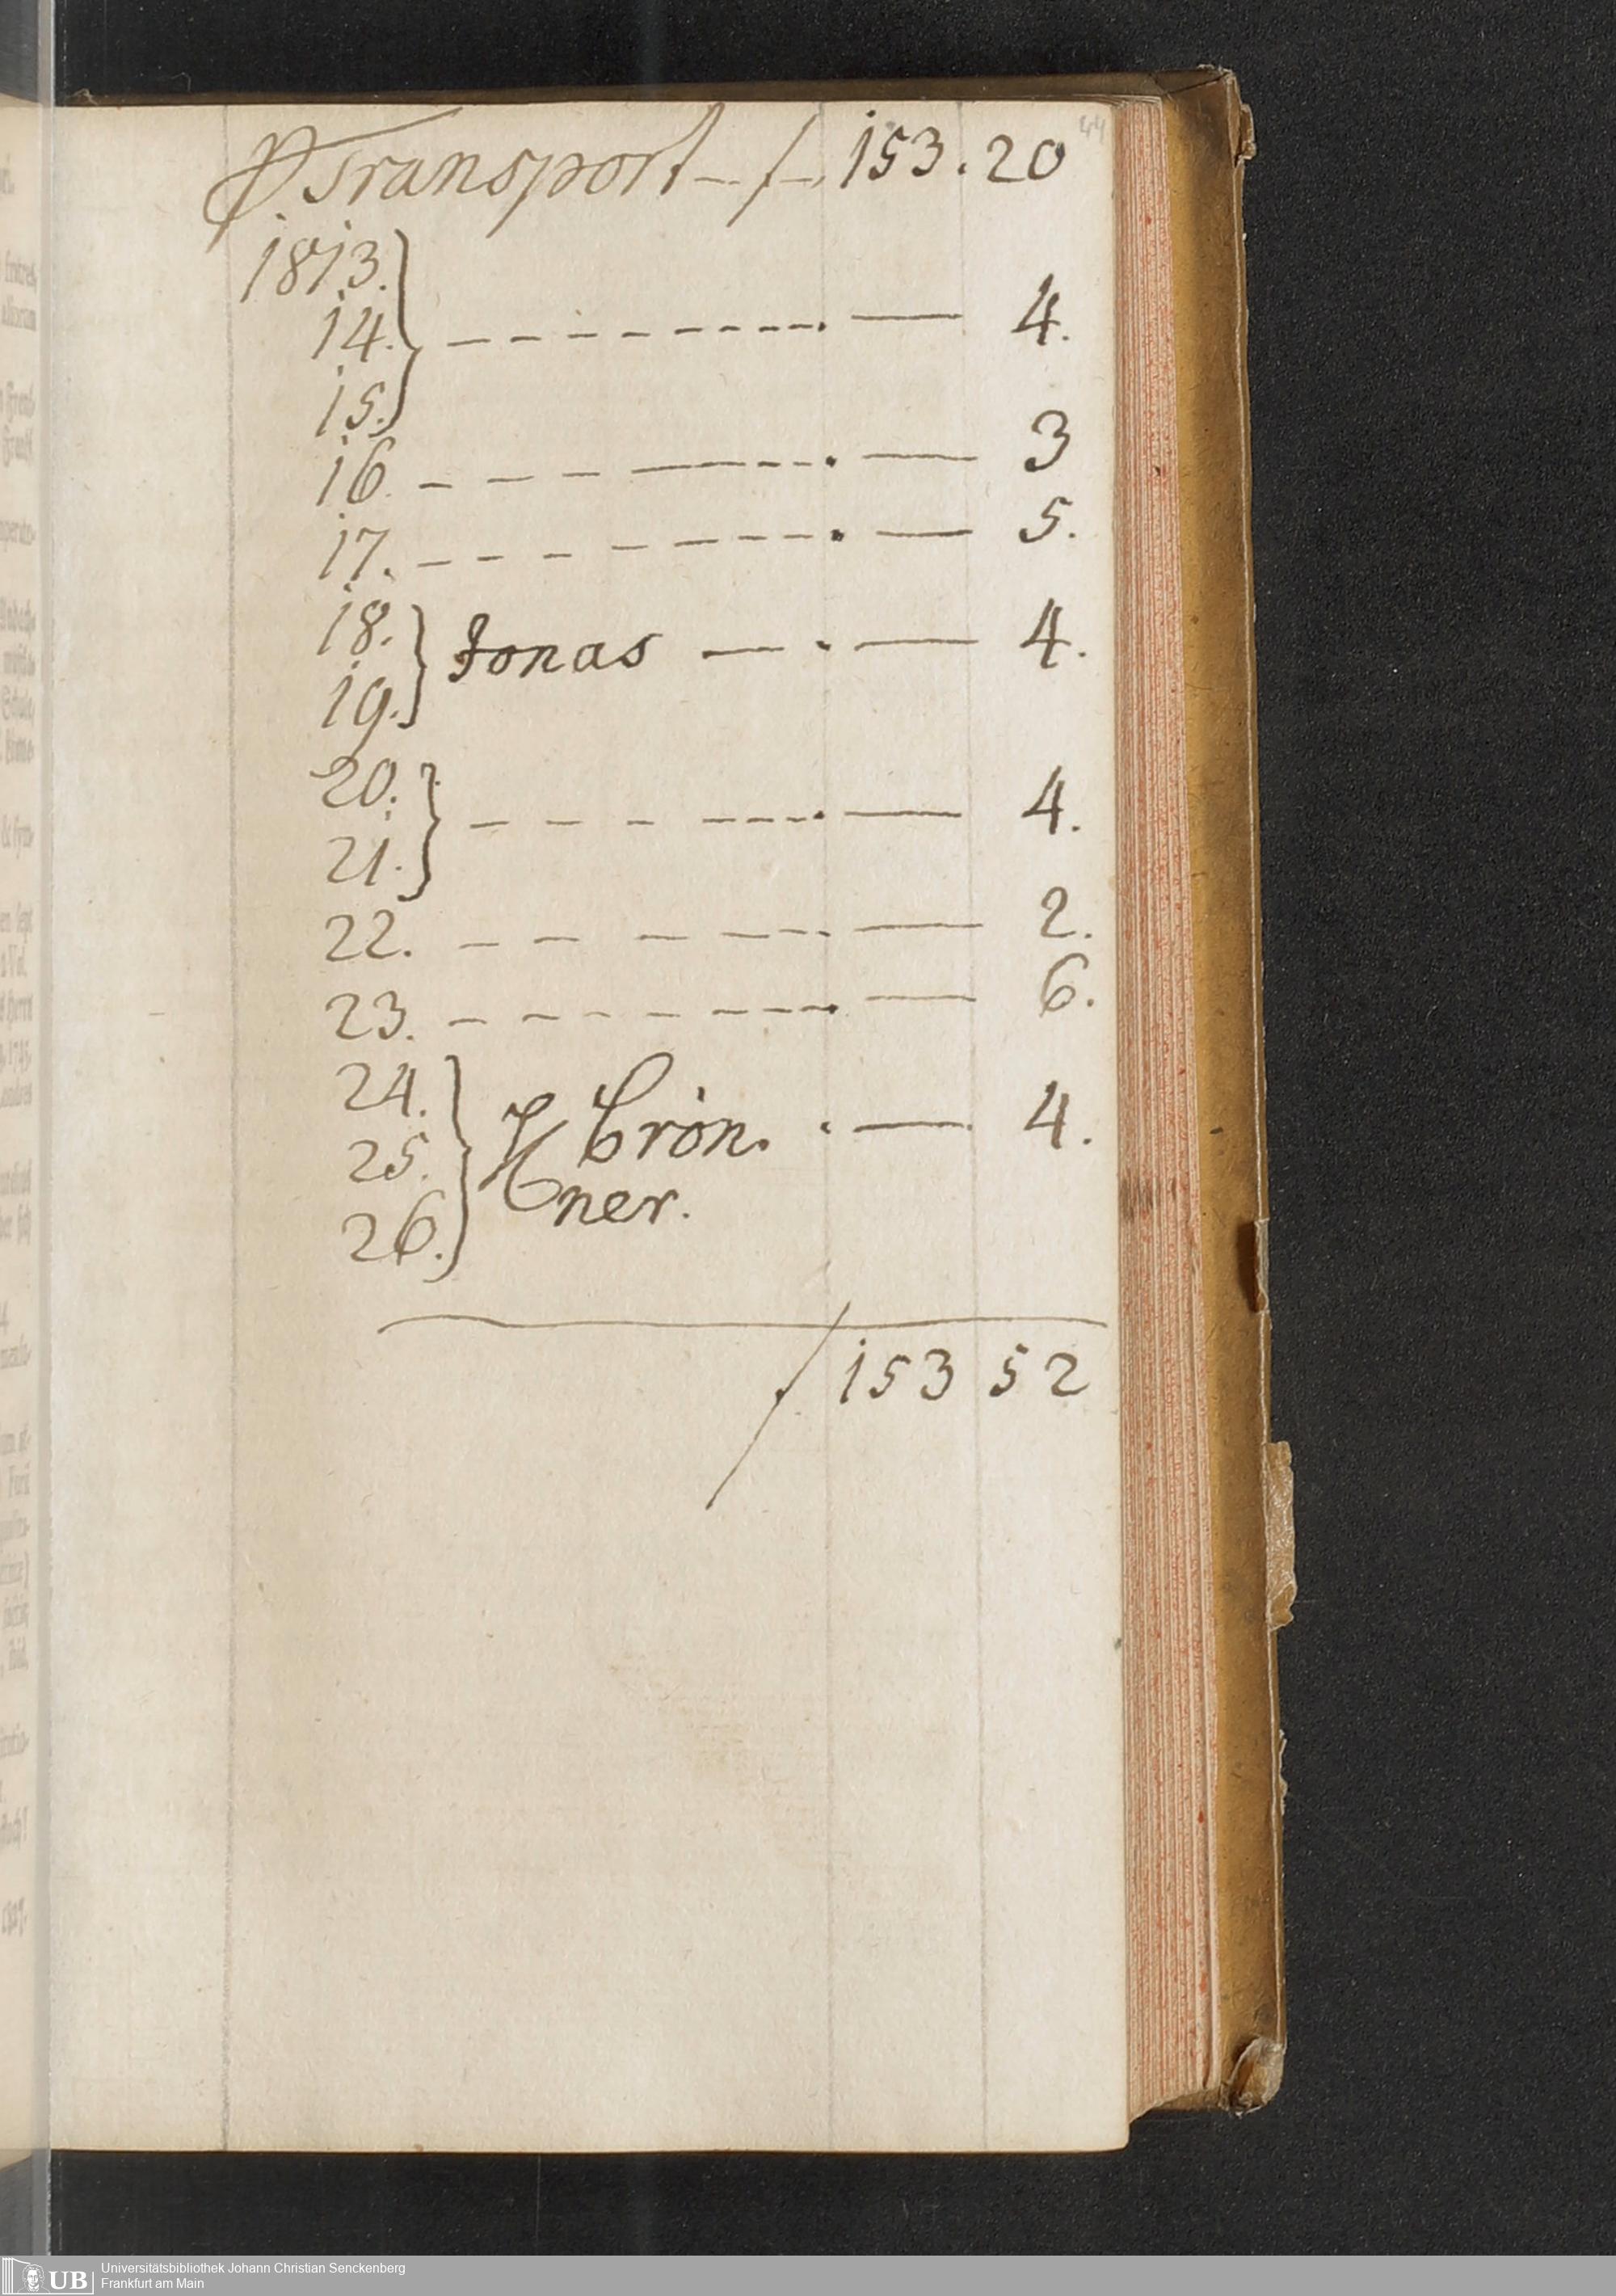 Transport - f - 153. 20
44
1813.
14. - - - - - - - - — 4.
15.
16. - - - - - - - — 3
17. - - - - - - - — 5.
18. Jonas — . — 4.
19.
20. - - - - - - - — 4.
21.
22. - - - - - - — 2.
23. - - - - - - - — 6.
24.
25. Crön. . — 4.
ner.
26.
f 153 52
UB Universitätsbibliothek Johann Christian Senckenberg
Frankfurt am Main